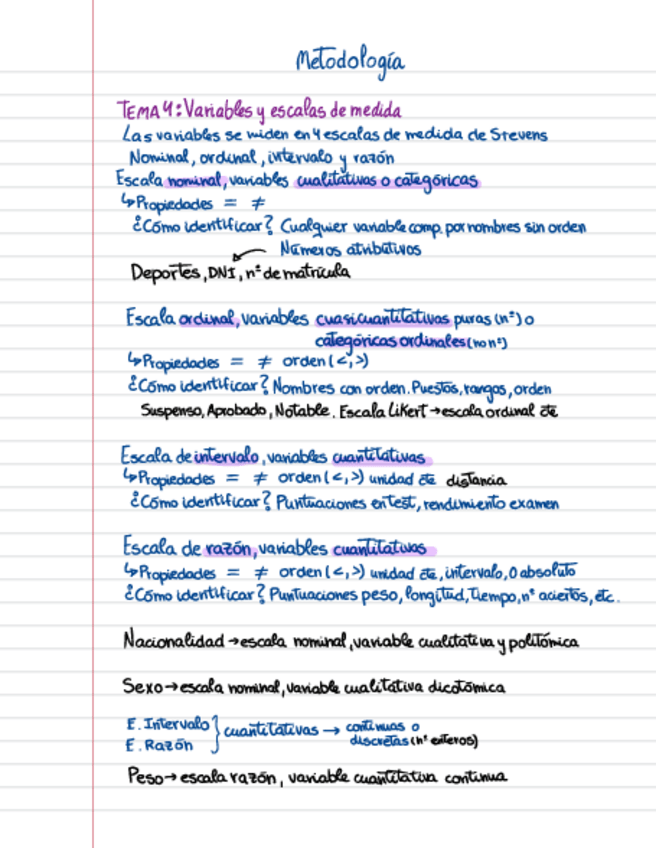 Metodología
TEMA 4: Variables y escalas de medida
Las variables se miden en 4 escalas de medida de Stevens
Nominal, ordinal, intervalo y razón
Escala nominal, variables cualitativas o categóricas
↳Propiedades = ≠
¿Cómo identificar? Cualquier variable comp. por nombres sin orden
Números atributivos
Deportes, DNI, nº de matrícula
Escala ordinal, variables cuasicuantitativas puras (nº) o
categóricas ordinales (no nº)
↳Propiedades = ≠ orden (<,>)
¿Cómo identificar? Nombres con orden. Puestos, rangos, orden
Suspenso, Aprobado, Notable. Escala Likert → escala ordinal cte
Escala de intervalo, variables cuantitativas
↳Propiedades = ≠ orden (<,>) unidad cte distancia
¿Cómo identificar? Puntuaciones en test, rendimiento examen
Escala de razón, variables cuantitativas
↳Propiedades = ≠ orden (<,>) unidad cte, intervalo, 0 absoluto
¿Cómo identificar? Puntuaciones peso, longitud, tiempo, nº aciertos, etc.
Nacionalidad → escala nominal, variable cualitativa y politómica
Sexo → escala nominal, variable cualitativa dicotómica
E. Intervalo } cuantitativas → continuas o
E. Razón discretas (nº enteros)
Peso → escala razón, variable cuantitativa continua